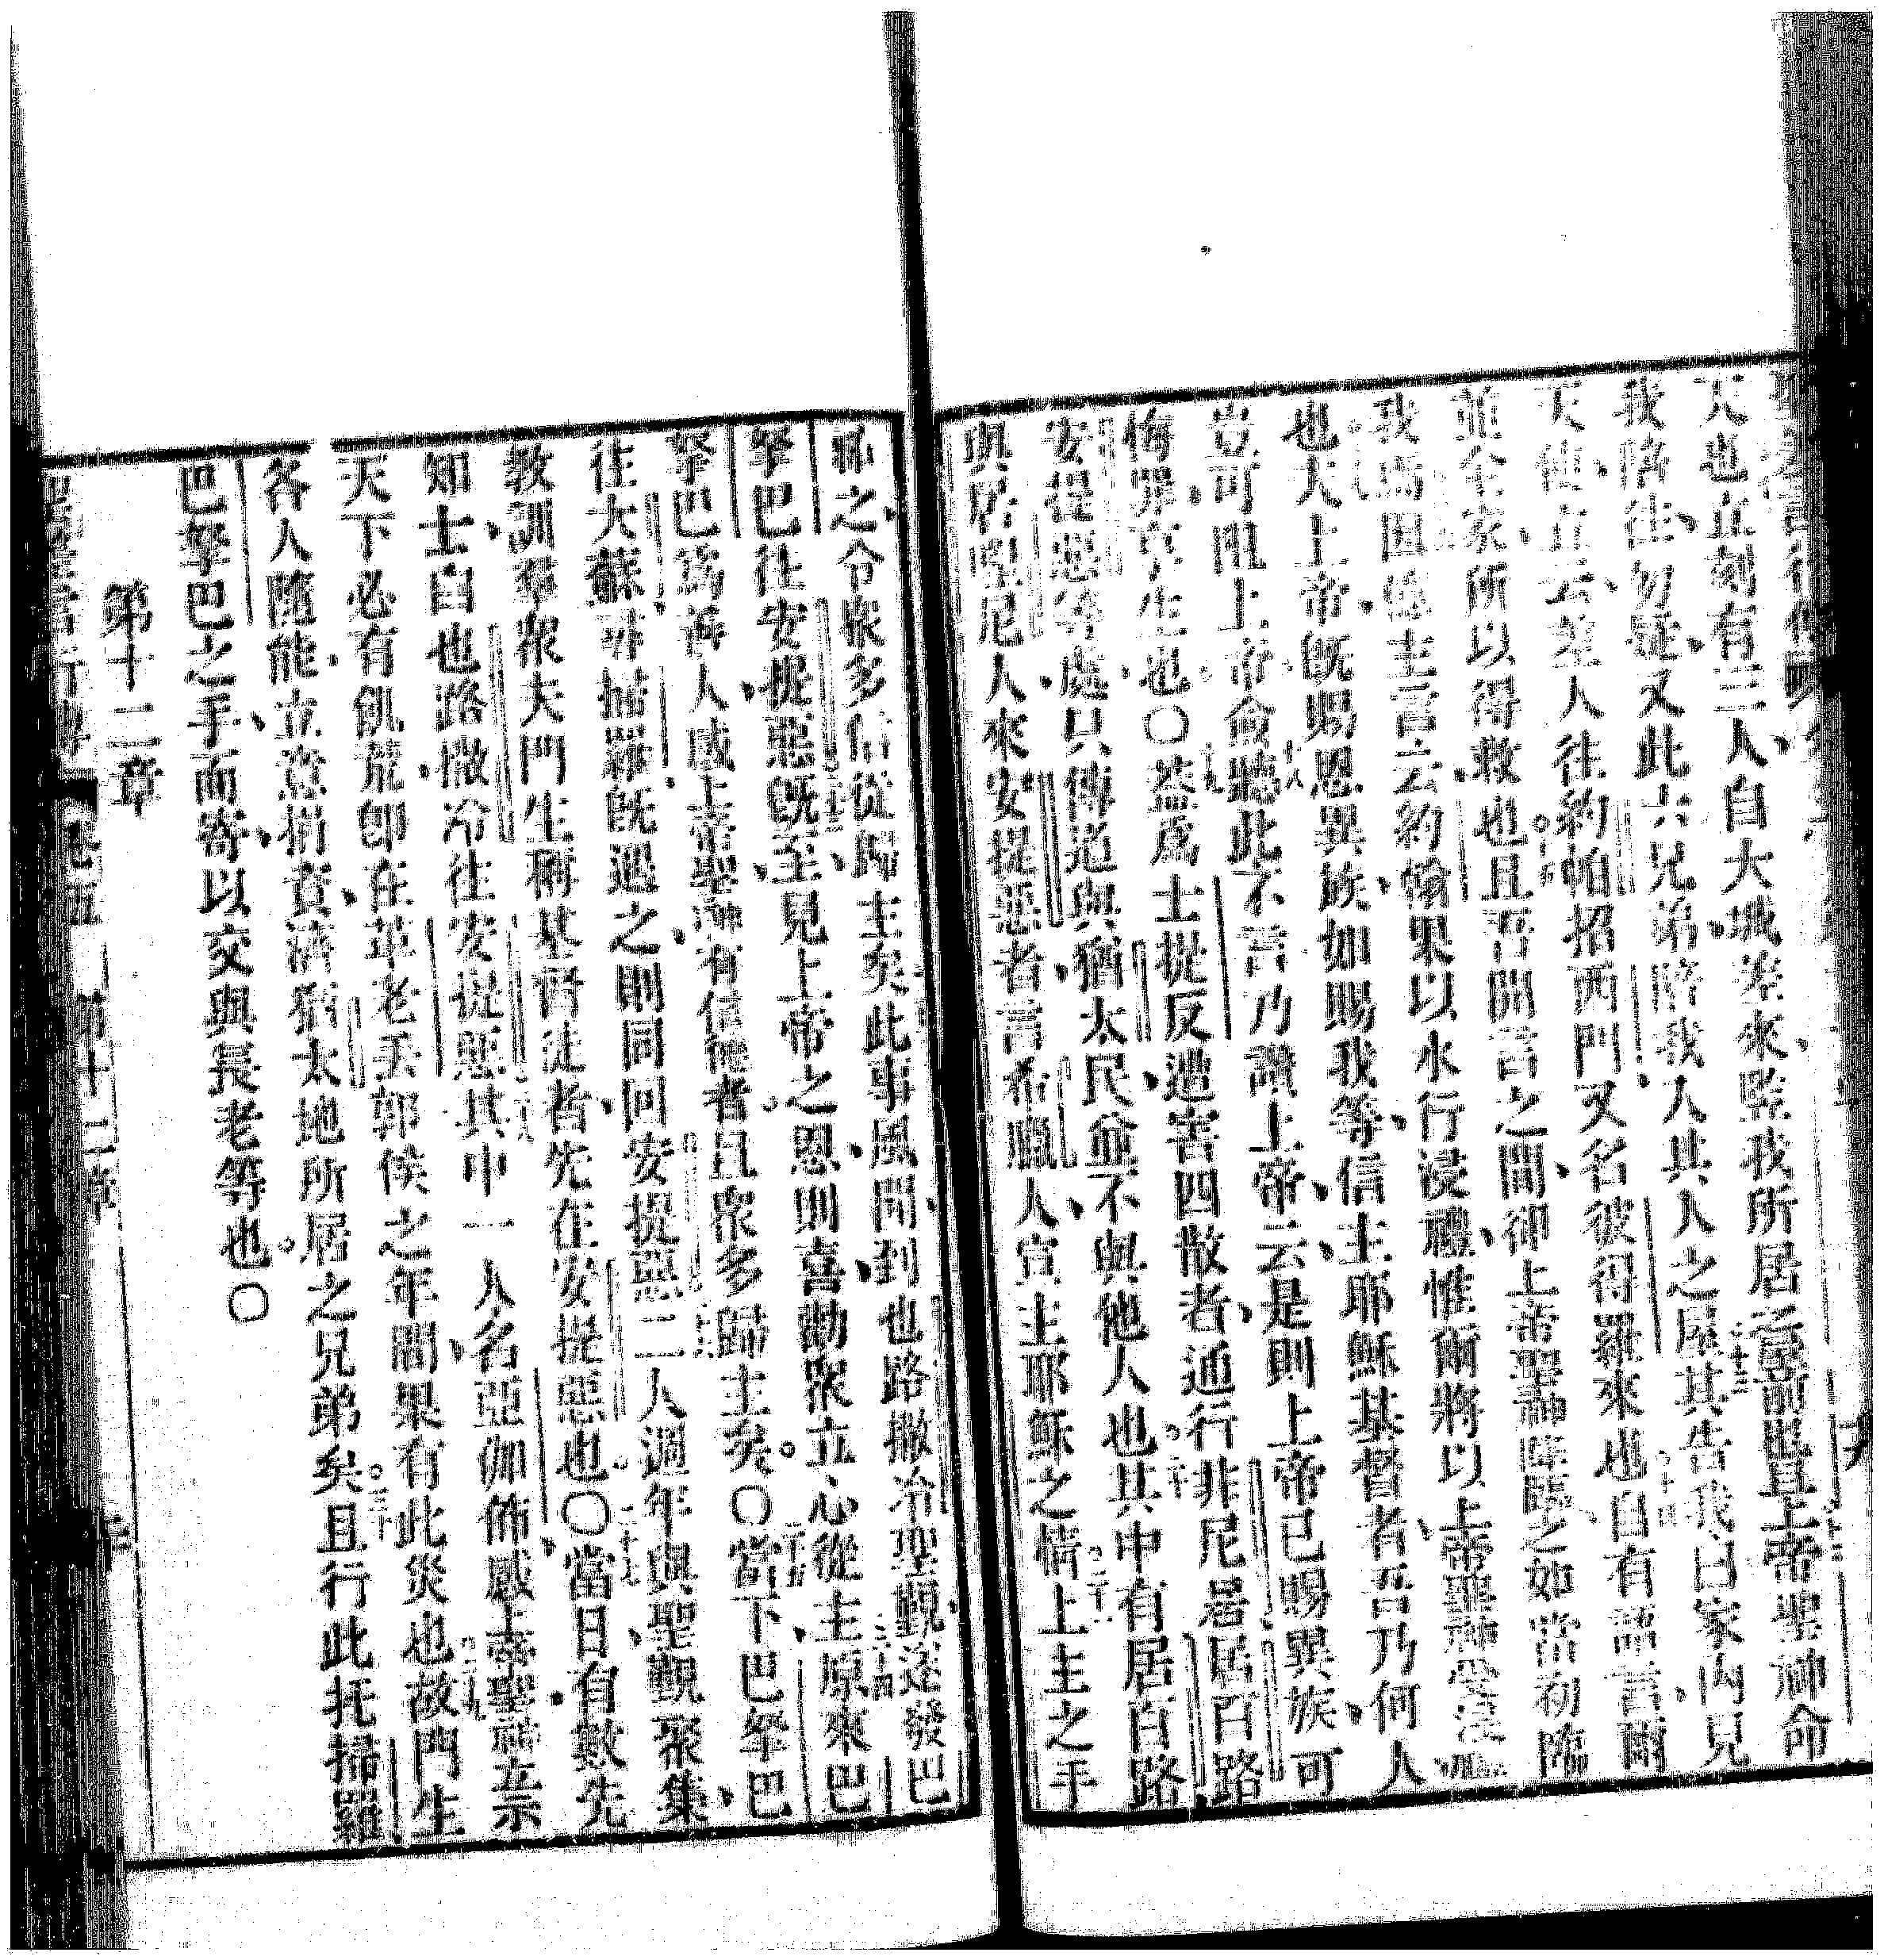 天也立刻有三人自大城差來監我所居之室前也且上帝聖神命
我陪往勿疑又此六兄弟陪我入其人之屋其告我曰家內見
天使立云差人往約帕招西門又名彼得羅來也自有諸言爾
並全家所以得救也且吾開言之間卻上帝聖神降臨之如當初臨
我焉因憶主言云約翰果以水行浸禮惟爾將以上帝聖神受浸
也夫上帝旣賜恩異族如賜我等信主耶穌基督者吾乃何人
豈可阻上帝僉聽此不言乃讚上帝云是則上帝已賜異族可
悔罪享生也〇葢爲士提反遭害四散者通行非尼居居百路
安提惡等處只傳道與猶太民並不與他人也其中有居百路
與居尼人來安提惡者言希臘人宣主耶穌之情上主之手
之令衆多信從歸主矣此事風聞到也路撒冷聖觀遂發巴
拏巴往安提惡旣至見上帝之恩則喜勸衆立心從主原來巴
拏巴爲善人感上帝聖神有信德者且衆多歸主矣〇當下巴拏巴
往大蘇尋掃羅旣遇之則同回安提惡二人週年與聖觀聚集
教訓羣衆夫門生稱基督徒者先在安提惡也〇當日有數先
知士自也路撒冷往安提惡其中一人名亞伽佈感上帝聖神立示
天下必有飢荒卽在革老丟郭侯之年間果有此災也故門生
各人隨能立意捐資濟猶太地所居之兄弟矣且行此托掃羅
巴拏巴之手而寄以交與長老等也〇
第十二章
卷五 第十二章